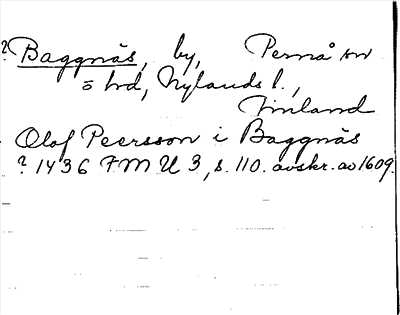 ? Baggnäs, by, Pernå sn
= hd, Nylands l.,
Finland
Olof Peersson i Baggnäs
? 1436 FMU 3, s. 110. avskr. av 1609.